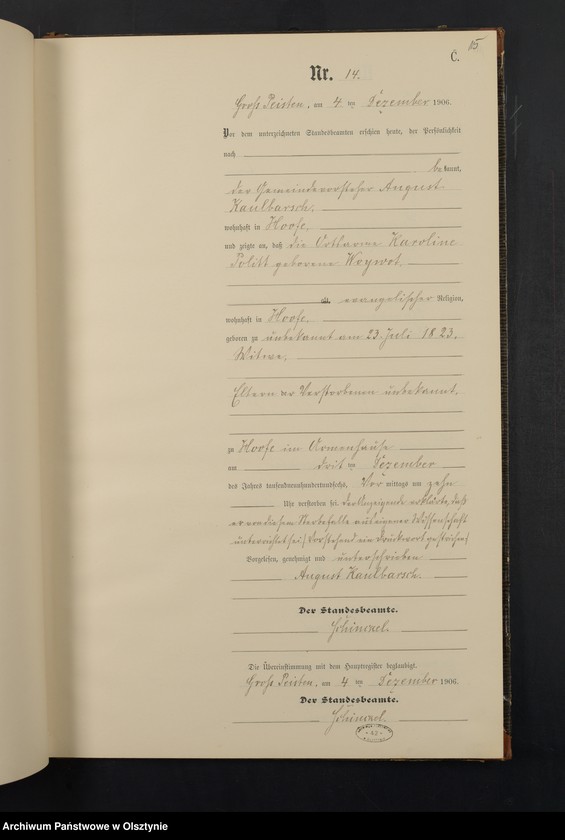 15
C.
Nr. 14.
Groß Peisten, am 4 ten Dezember 1906.
Vor dem unterzeichneten Standesbeamten erschien heute, der Persönlichkeit
nach
bekannt,
der Gemeindevorsteher August
Kaulbarsch,
wohnhaft in Hoofe,
und zeigte an, daß die Ortsarme Karoline
Politt geborene Woywot,
alt, evangelischer Religion,
wohnhaft in Hoofe,
geboren zu unbekannt am 23. Juli 1823,
Witwe,
Eltern der Verstorbenen unbekannt,
zu Hoofe im Armenhause
am dritten Dezember
des Jahres tausendneunhundertundsechs, Vormittags um zehn
Uhr verstorben sei. Der Anzeigende erklärte, daß
er von diesem Sterbefalle aus eigener Wissenschaft
unterrichtet sei. (Vorstehend ein Druckwort gestrichen)
Vorgelesen, genehmigt und unterschrieben
August Kaulbarsch.
Der Standesbeamte.
Die Übereinstimmung mit dem Hauptregister beglaubigt.
Groß Peisten, am 4 ten Dezember 1906.
Der Standesbeamte.
Archiwum Państwowe w Olsztynie